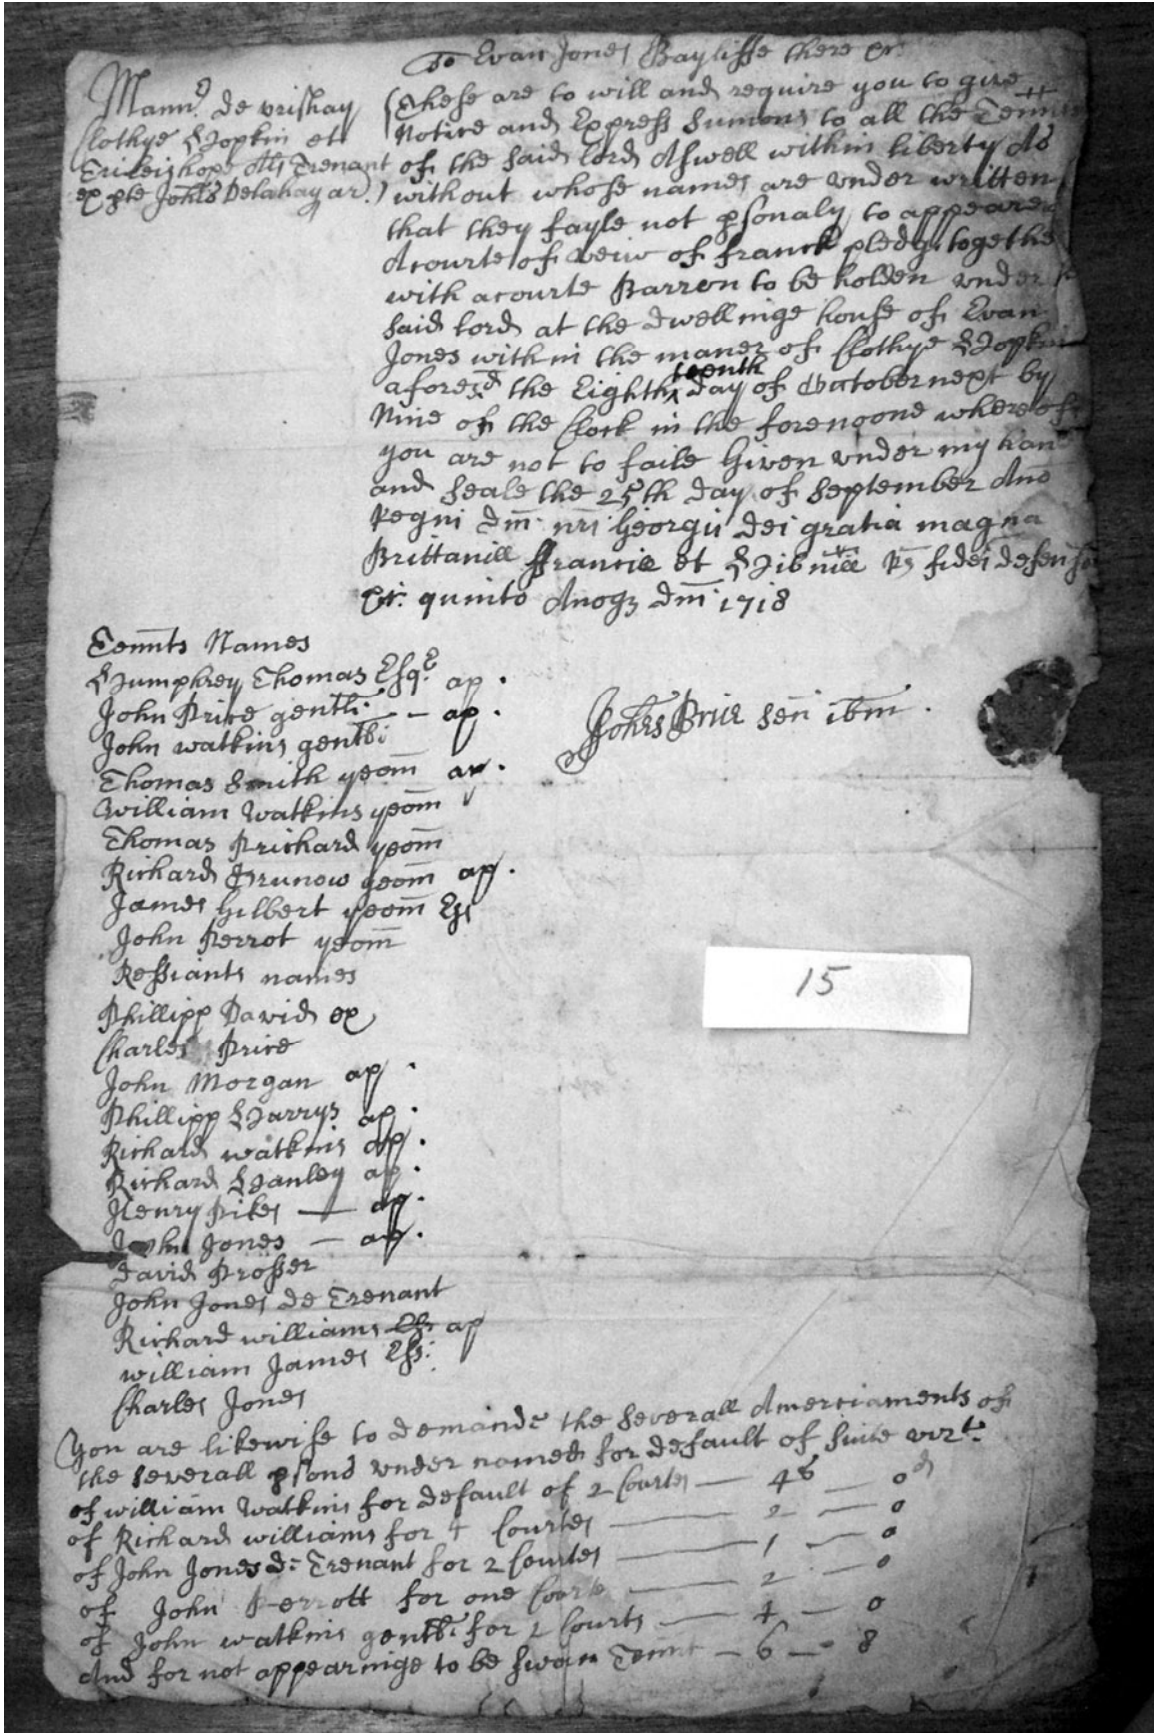 To Evan Jones Bayliffe there &c:
Mannr. de vrishay
Clothye Hopkin et
Trileighope als Trenant
ex pte Johis Delahay ar.
These are to will and require you to give
Notice and Express Sumons to all the Tennts
of the said lord Aswell within liberty As
without whose names are vnder written
that they fayle not psonaly to appeare
Acourte of veiw of franck pledg togethe
with acourte Barron to be holden vnder
said lord at the dwellinge house of Evan
Jones within the maner of Clothye Hopkin
aforesd. the Eighth teenth day of October next by
Nine of the Clock in the forenoone whereof
you are not to faile Given vnder my han
and seale the 25th day of September Ano
Regni Dm: nri Georgii dei gratia magna
Brittaniæ Franciæ et Hibniæ Rs fidei defens
&c: quinto Anoq dm: 1718
Tennts Names
Humphrey Thomas Esqe. ap.
John Price gentl: - - ap.
John watkins gentl:
Johes Price sen ibm.
Thomas Smith yeom ap.
William Watkins yeom
Thomas Prichard yeom
Richard Prunow yeom ap.
James Gilbert yeom Ess
John Perrot yeom
Ressiants names
Phillipp David ex
Charles Price
15
John Morgan ap.
Phillipp Harrys ap.
Richard watkins ap.
Richard Hanley ap.
Henry Pikes — ap.
John Jones — ap.
David Prosser
John Jones de Trenant
Richard williams Ess ap
william James Ess:
Charles Jones
You are likewise to demande the severall Amerciaments of
the severall psons vnder named for default of suite vizt:
of william Watkins for default of 2 Courtes — 4s — 0d
of Richard williams for 4 Courtes — 2 — 0
of John Jones de Trenant for 2 Courtes — 1 — 0
of John Perrott for one Courte — 2 — 0
of John watkins gentl: for 2 Courts — 4 — 0
And for not appearinge to be sworn Tennt — 6 - 8